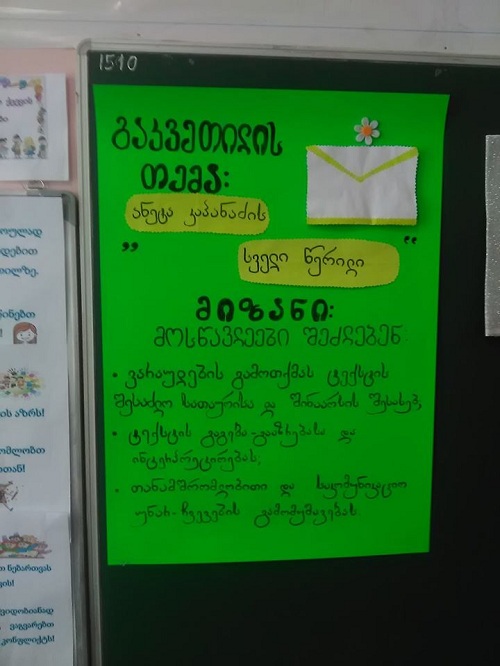 1510
გაკვეთილის
თემა:
ანეტა კაპანაძის
„ სველი წერილი “
მიზანი:
მოსწავლეები შეძლებენ
• ვარაუდების გამოთქმას ტექსტის
შესაძლო სათაურისა და შინაარსის შესახებ;
• ტექსტის გაგება-გააზრებასა და
ინტერპრეტირებას;
• თანამშრომლობითი და საკომუნიკაციო
უნარ-ჩვევების გამომუშავებას
ს აზრს!
კონფლიქტს!